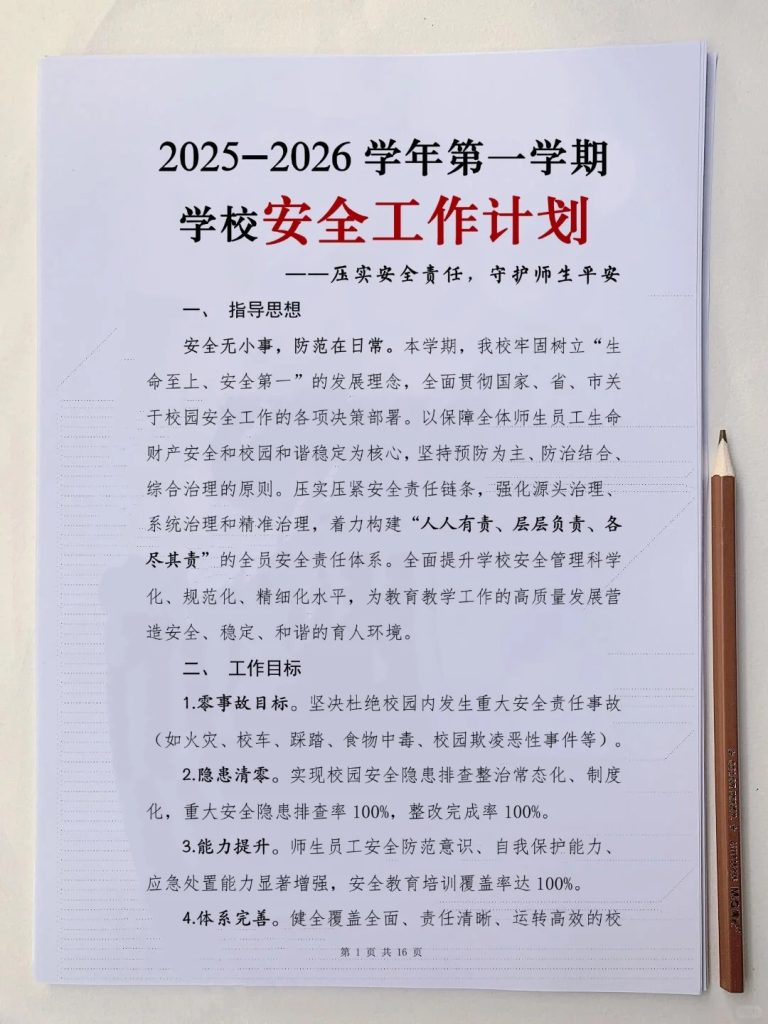 2025—2026 学年第一学期
学校安全工作计划
——压实安全责任，守护师生平安
一、 指导思想
安全无小事，防范在日常。本学期，我校牢固树立“生
命至上、安全第一”的发展理念，全面贯彻国家、省、市关
于校园安全工作的各项决策部署。以保障全体师生员工生命
财产安全和校园和谐稳定为核心，坚持预防为主、防治结合、
综合治理的原则。压实压紧安全责任链条，强化源头治理、
系统治理和精准治理，着力构建“人人有责、层层负责、各
尽其责”的全员安全责任体系。全面提升学校安全管理科学
化、规范化、精细化水平，为教育教学工作的高质量发展营
造安全、稳定、和谐的育人环境。
二、 工作目标
1.零事故目标。坚决杜绝校园内发生重大安全责任事故
（如火灾、校车、踩踏、食物中毒、校园欺凌恶性事件等）。
2.隐患清零。实现校园安全隐患排查整治常态化、制度
化，重大安全隐患排查率 100%，整改完成率 100%。
3.能力提升。师生员工安全防范意识、自我保护能力、
应急处置能力显著增强，安全教育培训覆盖率达 100%。
4.体系完善。健全覆盖全面、责任清晰、运转高效的校
第 1 页 共 16 页